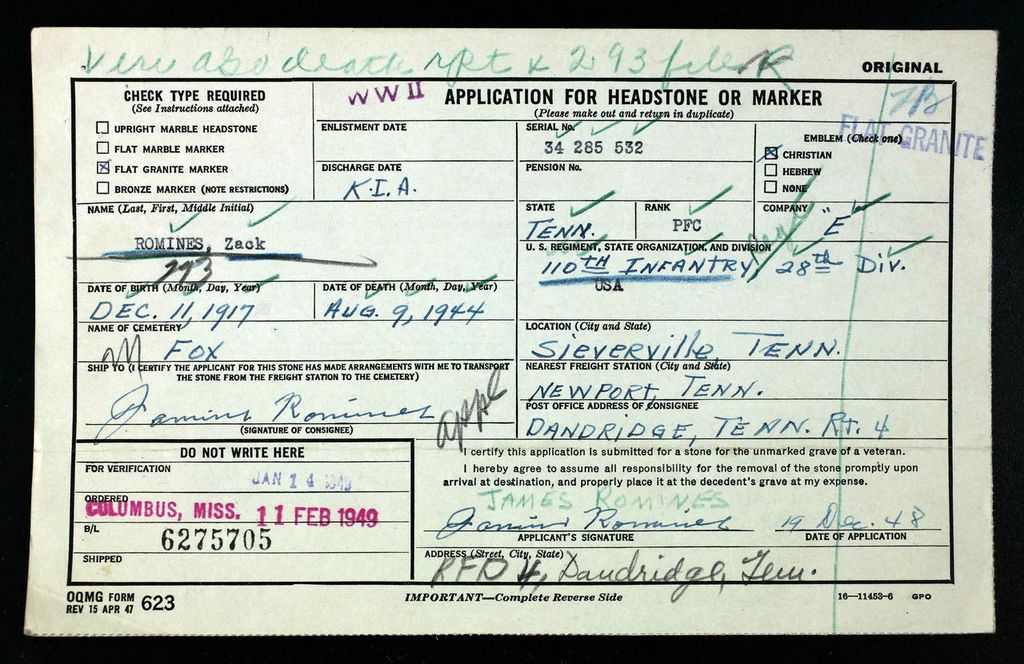 Veri also death rpt & 293 file R
ORIGINAL
CHECK TYPE REQUIRED
(See Instructions attached)
UPRIGHT MARBLE HEADSTONE
FLAT MARBLE MARKER
FLAT GRANITE MARKER
BRONZE MARKER (NOTE RESTRICTIONS)
WW II
APPLICATION FOR HEADSTONE OR MARKER
(Please make out and return in duplicate)
ENLISTMENT DATE
DISCHARGE DATE
K.I.A.
SERIAL No.
34 285 532
PENSION No.
EMBLEM (Check one)
CHRISTIAN
HEBREW
NONE
FLAT GRANITE
NAME (Last, First, Middle Initial)
ROMINES, Zack
293
STATE
TENN.
RANK
PFC
COMPANY
"E"
U. S. REGIMENT, STATE ORGANIZATION, AND DIVISION
110TH INFANTRY, 28th Div.
USA
DATE OF BIRTH (Month, Day, Year)
DEC. 11, 1917
DATE OF DEATH (Month, Day, Year)
AUG. 9, 1944
NAME OF CEMETERY
FOX
LOCATION (City and State)
Sieverville, TENN.
SHIP TO (I CERTIFY THE APPLICANT FOR THIS STONE HAS MADE ARRANGEMENTS WITH ME TO TRANSPORT
THE STONE FROM THE FREIGHT STATION TO THE CEMETERY)
NEAREST FREIGHT STATION (City and State)
NEWPORT, TENN.
Romines
(SIGNATURE OF CONSIGNEE)
appl
POST OFFICE ADDRESS OF CONSIGNEE
DANDRIDGE, TENN. Rt. 4
DO NOT WRITE HERE
FOR VERIFICATION
JAN 14 1949
ORDERED
COLUMBUS, MISS. 11 FEB 1949
B/L
6275705
SHIPPED
I certify this application is submitted for a stone for the unmarked grave of a veteran.
I hereby agree to assume all responsibility for the removal of the stone promptly upon
arrival at destination, and properly place it at the decedent's grave at my expense.
JAMES ROMINES
Romines 19 Dec. 48
APPLICANT'S SIGNATURE
DATE OF APPLICATION
ADDRESS (Street, City, State)
RFD 4, Dandridge, Tenn.
OQMG FORM 623
REV 15 APR 47
IMPORTANT—Complete Reverse Side
16—11453-6 GPO